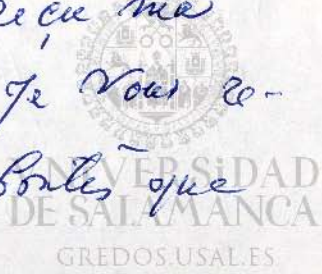 reçu ma
Je Vous re-
Bontés que
VNiVERSiDAD
DE SALAMANCA
GREDOS.USAL.ES